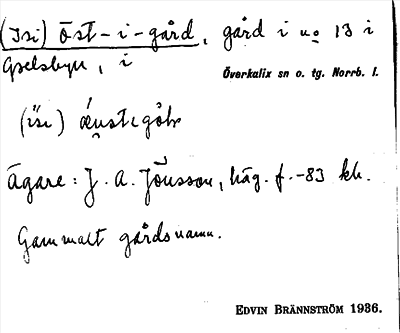 (Isi) öst-i-gård, gård i no 13 i
Gyelsbyn, i
Överkalix sn o. tg. Norrb. l.
(ìsi) 
Ägare: J. A. Jönsson, häg. f. -83 kh.
Gammalt gårdsnamn.
EDVIN BRÄNNSTRÖM 1936.